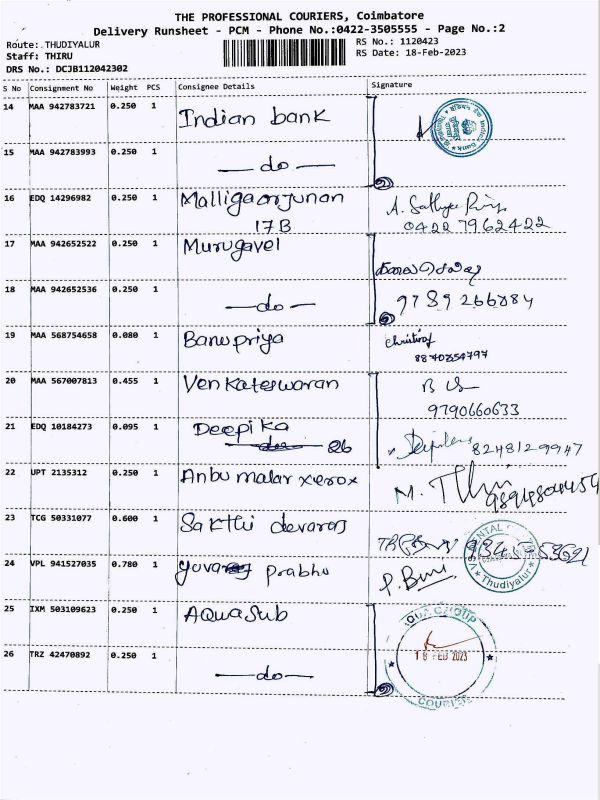 THE PROFESSIONAL COURIERS, Coimbatore
Delivery Runsheet - PCM - Phone No.:0422-3505555 - Page No.:2
Route: THUDIYALUR
RS No.: 1120423
Staff: THIRU
RS Date: 18-Feb-2023
DRS No.: DCJB112042302
S No Consignment No Weight PCS Consignee Details Signature
14 MAA 942783721 0.250 1 Indian bank
15 MAA 942783993 0.250 1 —do—
16 EDQ 14296982 0.250 1 Malligaarjunan A. Sathya
17B 0422 7962422
17 MAA 942652522 0.250 1 Murugavel
18 MAA 942652536 0.250 1 —do— 9789266884
19 MAA 568754658 0.080 1 Banupriya
8870354797
20 MAA 567007813 0.455 1 Venkateswaran
9790660633
21 EDQ 10184273 0.095 1 Deepika 8248129947
22 UPT 2135312 0.250 1 Anbu malar xerox M.
23 TCG 50331077 0.600 1 Sakthi devaraj
DENTAL
Thudiyalur
24 VPL 941527035 0.780 1 yuvaraj prabhu
25 IXM 503109623 0.250 1 AQuasub
AQUA GROUP
18 FEB 2023
COURIER
26 TRZ 42470892 0.250 1 —do—